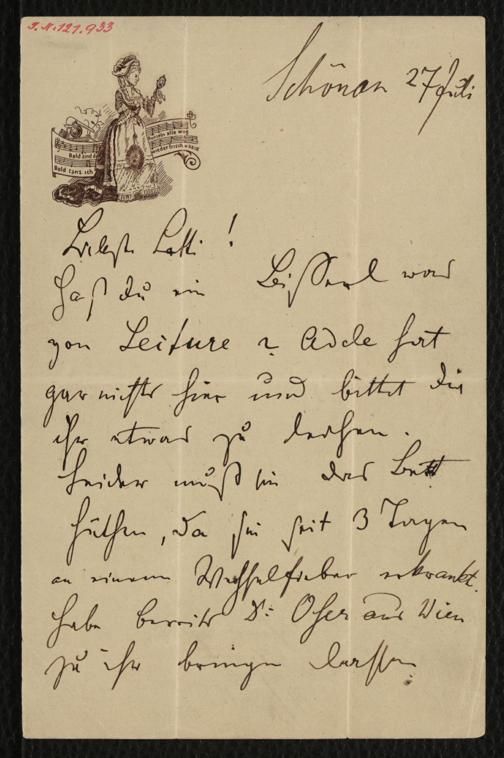 I.N.121.933
Schönau 27 Juli
Bald sind
Bald tanz ich
Liebste Lotti!
Hast du ein Bisserl was
von Leiture? Adele hat
gar nichts hier und bittet dir
ihr etwas zu leihen.
Leider muß sie das Bett
hüthen, da sie seit 3 Tagen
an einem Wechselfieber erkrankt.
Habe bereits Dr: Oser aus Wien
zu ihr bringen lassen